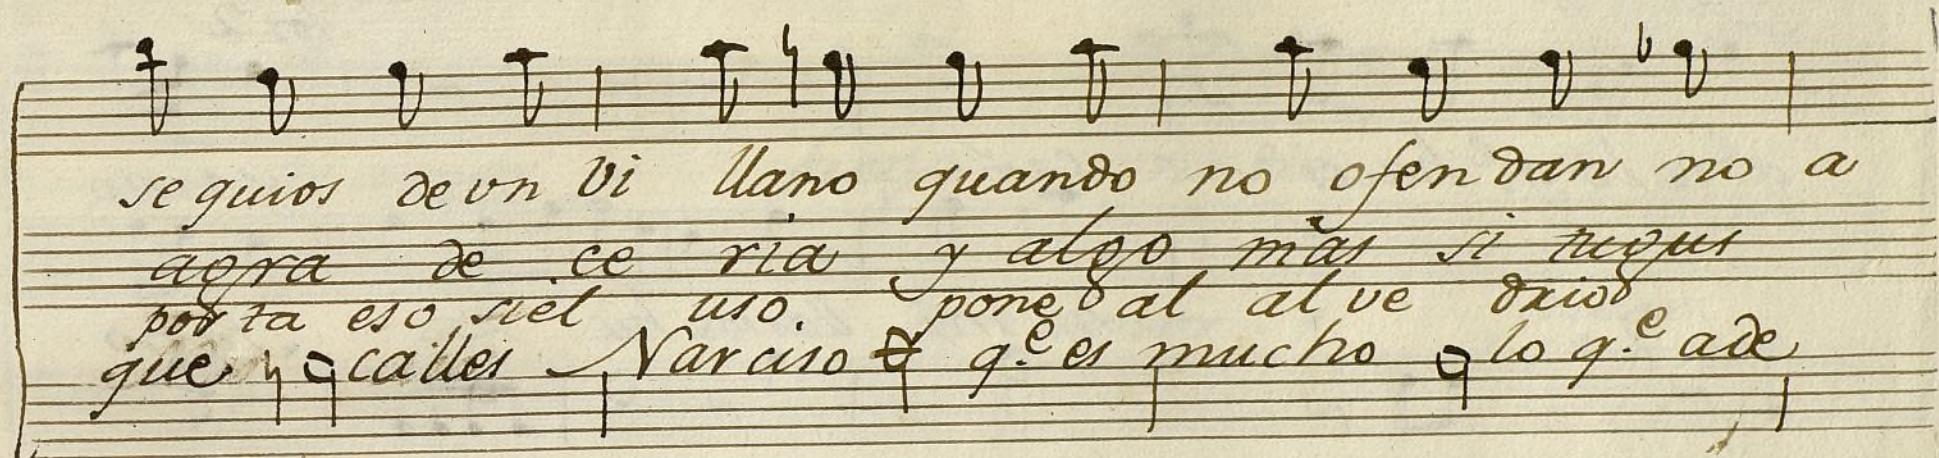 se quios de vn vi llano quando no ofen dan no a
agra de ce ria y algo mas si
por ta eso si el uso. pone al al ve drio
que calles Narciso q.e es mucho lo q.e ade